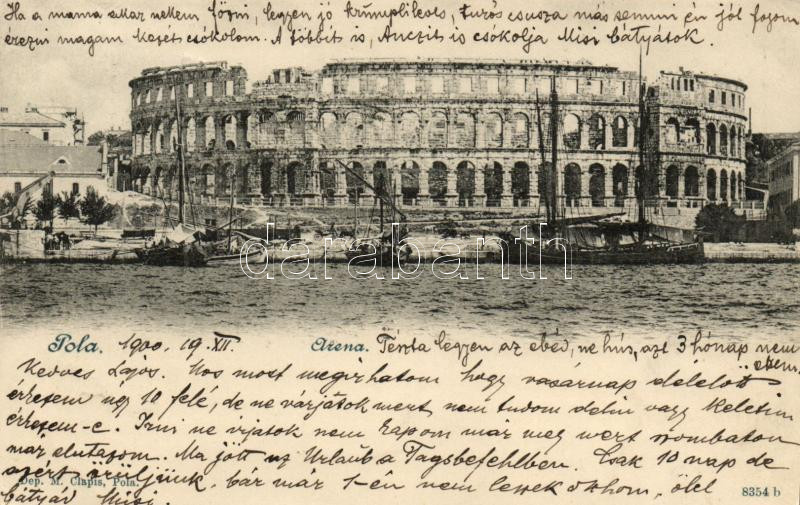 Ha a mama akar nekem főzni, legyen jó krumplileves, turós csusza más semmi én jól fogom
érezni magam Kezét csókolom. A többit is, Anczit is csókolja Misi bátyátok.
darabanth
Pola. 1900. 19. XII. Arena. Tészta legyen az ebéd, ne hús, azt 3 hónap nem
ettem.
Kedves Lajos. Nos most megirhatom hogy vasárnap délelőtt
érkezem úgy 10 felé, de ne várjatok mert nem tudom délin vagy Keletin
érkezem-e. Irni ne irjatok nem kapom már meg mert szombaton
már elutazom. Ma jött az Urlaub a Tagsbefehlben. Csak 10 nap de
azért örüljünk, bár már 1-én nem leszek otthon, ölel
bátyád Misi.
Dep. M. Clapis, Pola.
8354 b